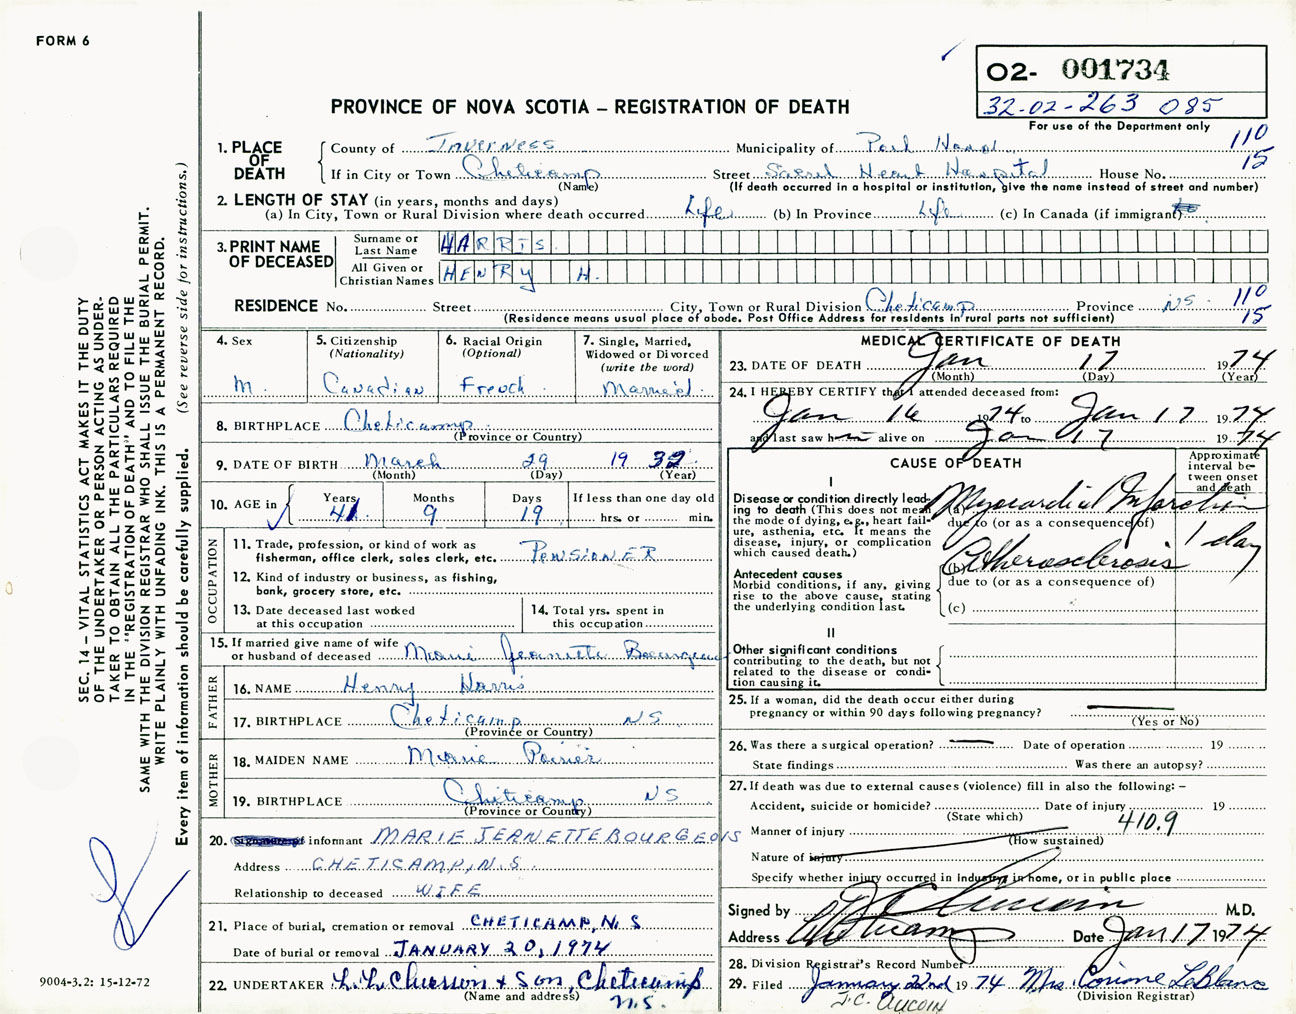 FORM 6
O2- 001734
32-02-263 085
For use of the Department only
PROVINCE OF NOVA SCOTIA – REGISTRATION OF DEATH
1. PLACE OF DEATH
County of Inverness Municipality of Port Hood 110
If in City or Town Cheticamp Street Sacred Heart Hospital House No. 15
(Name) (If death occurred in a hospital or institution, give the name instead of street and number)
2. LENGTH OF STAY (in years, months and days)
(a) In City, Town or Rural Division where death occurred Life (b) In Province Life (c) In Canada (if immigrant)
3. PRINT NAME OF DECEASED
Surname or Last Name HARRIS
All Given or Christian Names HENRY H.
RESIDENCE No. Street City, Town or Rural Division Cheticamp Province NS. 110
(Residence means usual place of abode. Post Office Address for residents in rural parts not sufficient) 15
4. Sex
M.
5. Citizenship
(Nationality)
Canadian
6. Racial Origin
(Optional)
French
7. Single, Married,
Widowed or Divorced
(write the word)
Married
8. BIRTHPLACE Cheticamp
(Province or Country)
9. DATE OF BIRTH March 29 1932
(Month) (Day) (Year)
10. AGE in
Years Months Days If less than one day old
41 9 19 hrs. or min.
OCCUPATION
11. Trade, profession, or kind of work as
fisherman, office clerk, sales clerk, etc. PENSIONER
12. Kind of industry or business, as fishing,
bank, grocery store, etc.
13. Date deceased last worked
at this occupation
14. Total yrs. spent in
this occupation
15. If married give name of wife
or husband of deceased Marie Jeanette Bourgeois
FATHER
16. NAME Henry Harris
17. BIRTHPLACE Cheticamp NS
(Province or Country)
MOTHER
18. MAIDEN NAME Marie Poirier
19. BIRTHPLACE Cheticamp NS
(Province or Country)
20. Signature of informant MARIE JEANETTE BOURGEOIS
Address CHETICAMP, N.S.
Relationship to deceased WIFE
21. Place of burial, cremation or removal CHETICAMP, N.S
Date of burial or removal JANUARY 20, 1974
22. UNDERTAKER & Son, Cheticamp
(Name and address) N.S.
MEDICAL CERTIFICATE OF DEATH
23. DATE OF DEATH Jan 17 1974
(Month) (Day) (Year)
24. I HEREBY CERTIFY that I attended deceased from:
Jan 16 1974 to Jan 17 1974
and last saw him alive on Jan 17 1974
CAUSE OF DEATH
Approximate
interval be-
tween onset
and death
I
Disease or condition directly lead-
ing to death (This does not mean
the mode of dying, e.g., heart fail-
ure, asthenia, etc. It means the
disease, injury, or complication
which caused death.)
(a) Myocardial Infarction
due to (or as a consequence of)
1 day
Antecedent causes
Morbid conditions, if any, giving
rise to the above cause, stating
the underlying condition last.
(b) Atherosclerosis
due to (or as a consequence of)
(c)
II
Other significant conditions
contributing to the death, but not
related to the disease or condi-
tion causing it.
25. If a woman, did the death occur either during
pregnancy or within 90 days following pregnancy?
(Yes or No)
26. Was there a surgical operation? Date of operation 19
State findings Was there an autopsy?
27. If death was due to external causes (violence) fill in also the following: –
Accident, suicide or homicide? Date of injury 19
(State which) 410.9
Manner of injury
(How sustained)
Nature of injury
Specify whether injury occurred in industry, in home, or in public place
Signed by Aucoin M.D.
Address Cheticamp Date Jan 17 1974
28. Division Registrar's Record Number
29. Filed January 22nd 1974 Mrs. Corinne LeBlanc
J.C. AUCOIN (Division Registrar)
SEC. 14 – VITAL STATISTICS ACT MAKES IT THE DUTY
OF THE UNDERTAKER OR PERSON ACTING AS UNDER-
TAKER TO OBTAIN ALL THE PARTICULARS REQUIRED
IN THE "REGISTRATION OF DEATH" AND TO FILE THE
SAME WITH THE DIVISION REGISTRAR WHO SHALL ISSUE THE BURIAL PERMIT.
WRITE PLAINLY WITH UNFADING INK. THIS IS A PERMANENT RECORD.
Every item of information should be carefully supplied. (See reverse side for instructions.)
9004-3.2: 15-12-72